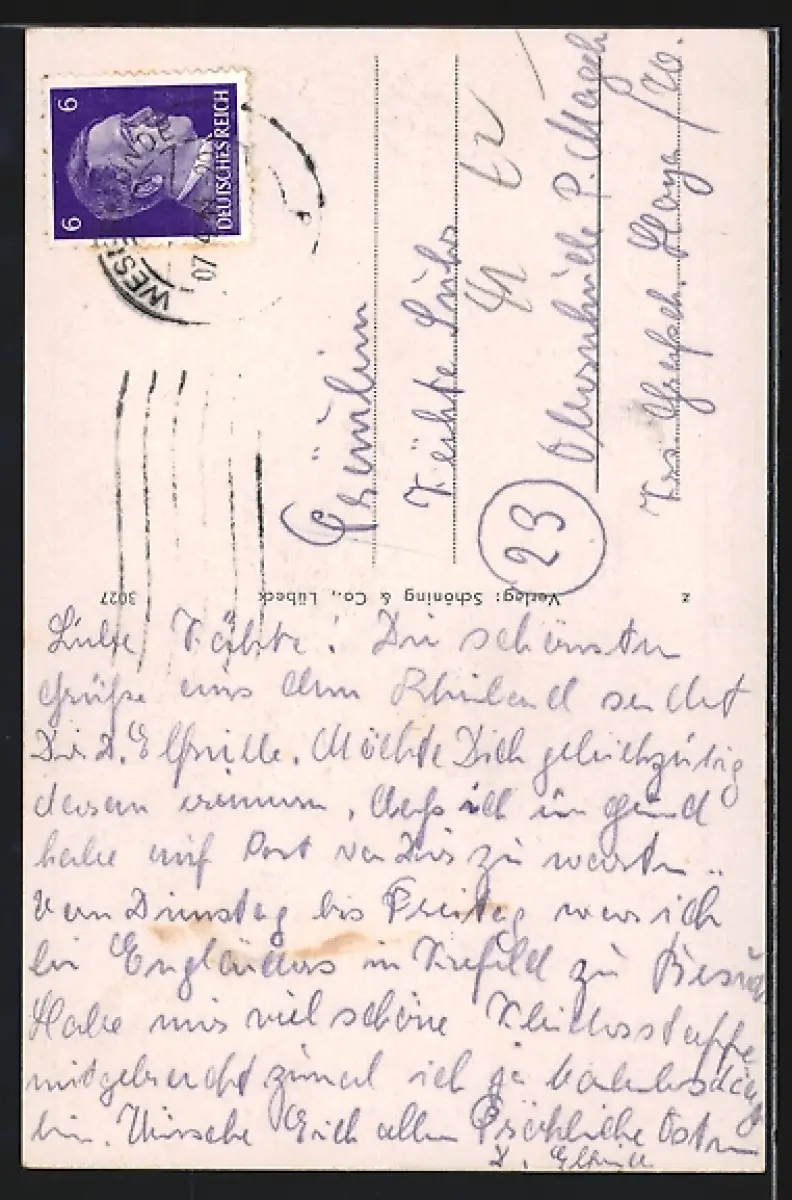 6 6
DEUTSCHES REICH
WESE
07
Fräulein
Käthe Lührs
23
P. Magels
Krs. Grafsch. Hoya / W.
3027 Verlag: Schöning & Co., Lübeck Z
Liebe Käthe! Die schönsten
Grüße aus dem Rheinland sendet
Dir D. Elfriede. Möchte Dich gleichzeitig
daran erinnern, daß ich im Grund
habe auf Post von Dir zu warten..
Von Dienstag bis Freitag war ich
bei Engländers in Krefeld zu Besuch
Habe mir viel schöne Kleiderstoffe
mitgebracht zumal ich ja
bin. Wünsche Euch allen Fröhliche Ostern
D. Elfriede